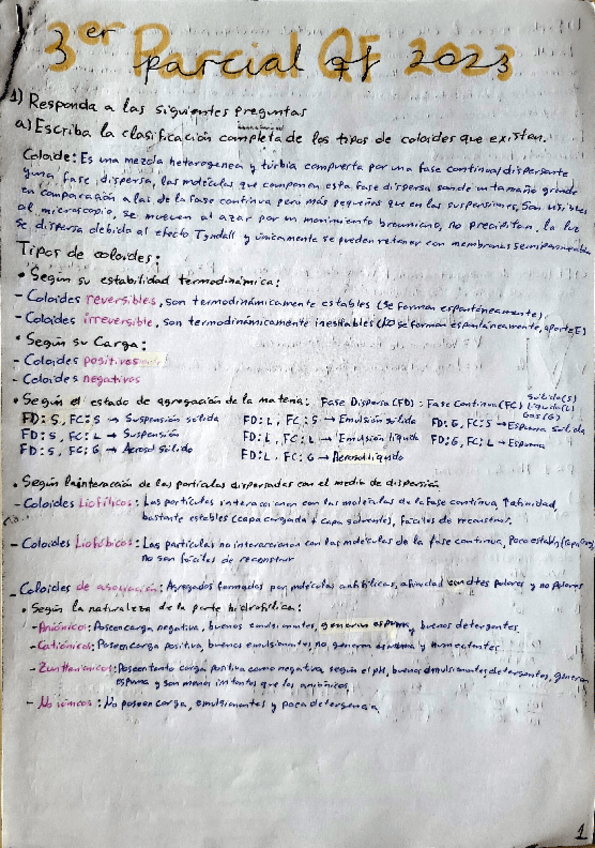 3er Parcial QF 2023
1) Responda a las siguientes preguntas
a) Escriba la clasificación completa de los tipos de coloides que existen.
Coloide: Es una mezcla heterogenea y turbia compuesta por una fase continua/dispersante
y una fase dispersa, las moléculas que componen esta fase dispersa son de un tamaño grande
en comparación a las de la fase continua pero más pequeñas que en las suspensiones, Son visibles
al microscopio, se mueven al azar por un movimiento browniano, no precipitan, la luz
se dispersa debida al efecto Tyndall y únicamente se pueden retener con membranas semipermeables
Tipos de coloides:
• Según su estabilidad termodinámica:
- Coloides reversibles, son termodinámicamente estables (se forman espontáneamente)
- Coloides irreversible, son termodinámicamente inestables (No se forman espontáneamente, aporte E)
• Según su Carga:
- Coloides positivos
- Coloides negativos
• Según el estado de agregación de la materia: Fase Dispersa (FD) : Fase Continua (FC) Sólido (S)
Líquido (L)
Gas (G)
FD: S, FC: S → Suspensión sólida FD: L, FC: S → Emulsión sólida FD: G, FC: S → Espuma Sólida
FD: S, FC: L → Suspensión FD: L, FC: L → Emulsión líquida FD: G, FC: L → Espuma
FD: S, FC: G → Aerosol sólido FD: L, FC: G → Aerosol líquido
• Según la interacción de las partículas dispersadas con el medio de dispersión
- Coloides Liofílicos: Las partículas interaccionan con las moléculas de la fase continua, ↑ afinidad,
bastante estables (capa cargada + capa solvente), fáciles de reconstruir.
- Coloides Liofóbicos: Las partículas no interaccionan con las moléculas de la fase continua, Poco estables
no son fáciles de reconstruir
- Coloides de asociación: Agregados formados por moléculas anfifílicas, afinidad con dtes polares y no polares
• Según la naturaleza de la parte hidrofílica:
- Aniónicos: Poseen carga negativa, buenos emulsionantes, generan espuma y buenos detergentes.
- Catiónicos: Poseen carga positiva, buenos emulsionantes, no generan espuma y humectantes.
- Zwitteriónicos: Poseen tanto carga positiva como negativa, según el pH, buenos emulsionantes, detergentes, generan
espuma y son menos irritantes que los aniónicos
- No iónicos: No poseen carga, emulsionantes y poca detergencia
1